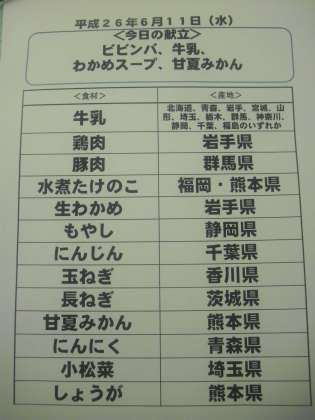 平成26年6月11日（水）
＜今日の献立＞
ビビンバ、牛乳、
わかめスープ、甘夏みかん
＜食材＞ ＜産地＞
牛乳 北海道、青森、岩手、宮城、山
形、埼玉、栃木、群馬、神奈川、
静岡、千葉、福島のいずれか
鶏肉 岩手県
豚肉 群馬県
水煮たけのこ 福岡・熊本県
生わかめ 岩手県
もやし 静岡県
にんじん 千葉県
玉ねぎ 香川県
長ねぎ 茨城県
甘夏みかん 熊本県
にんにく 青森県
小松菜 埼玉県
しょうが 熊本県